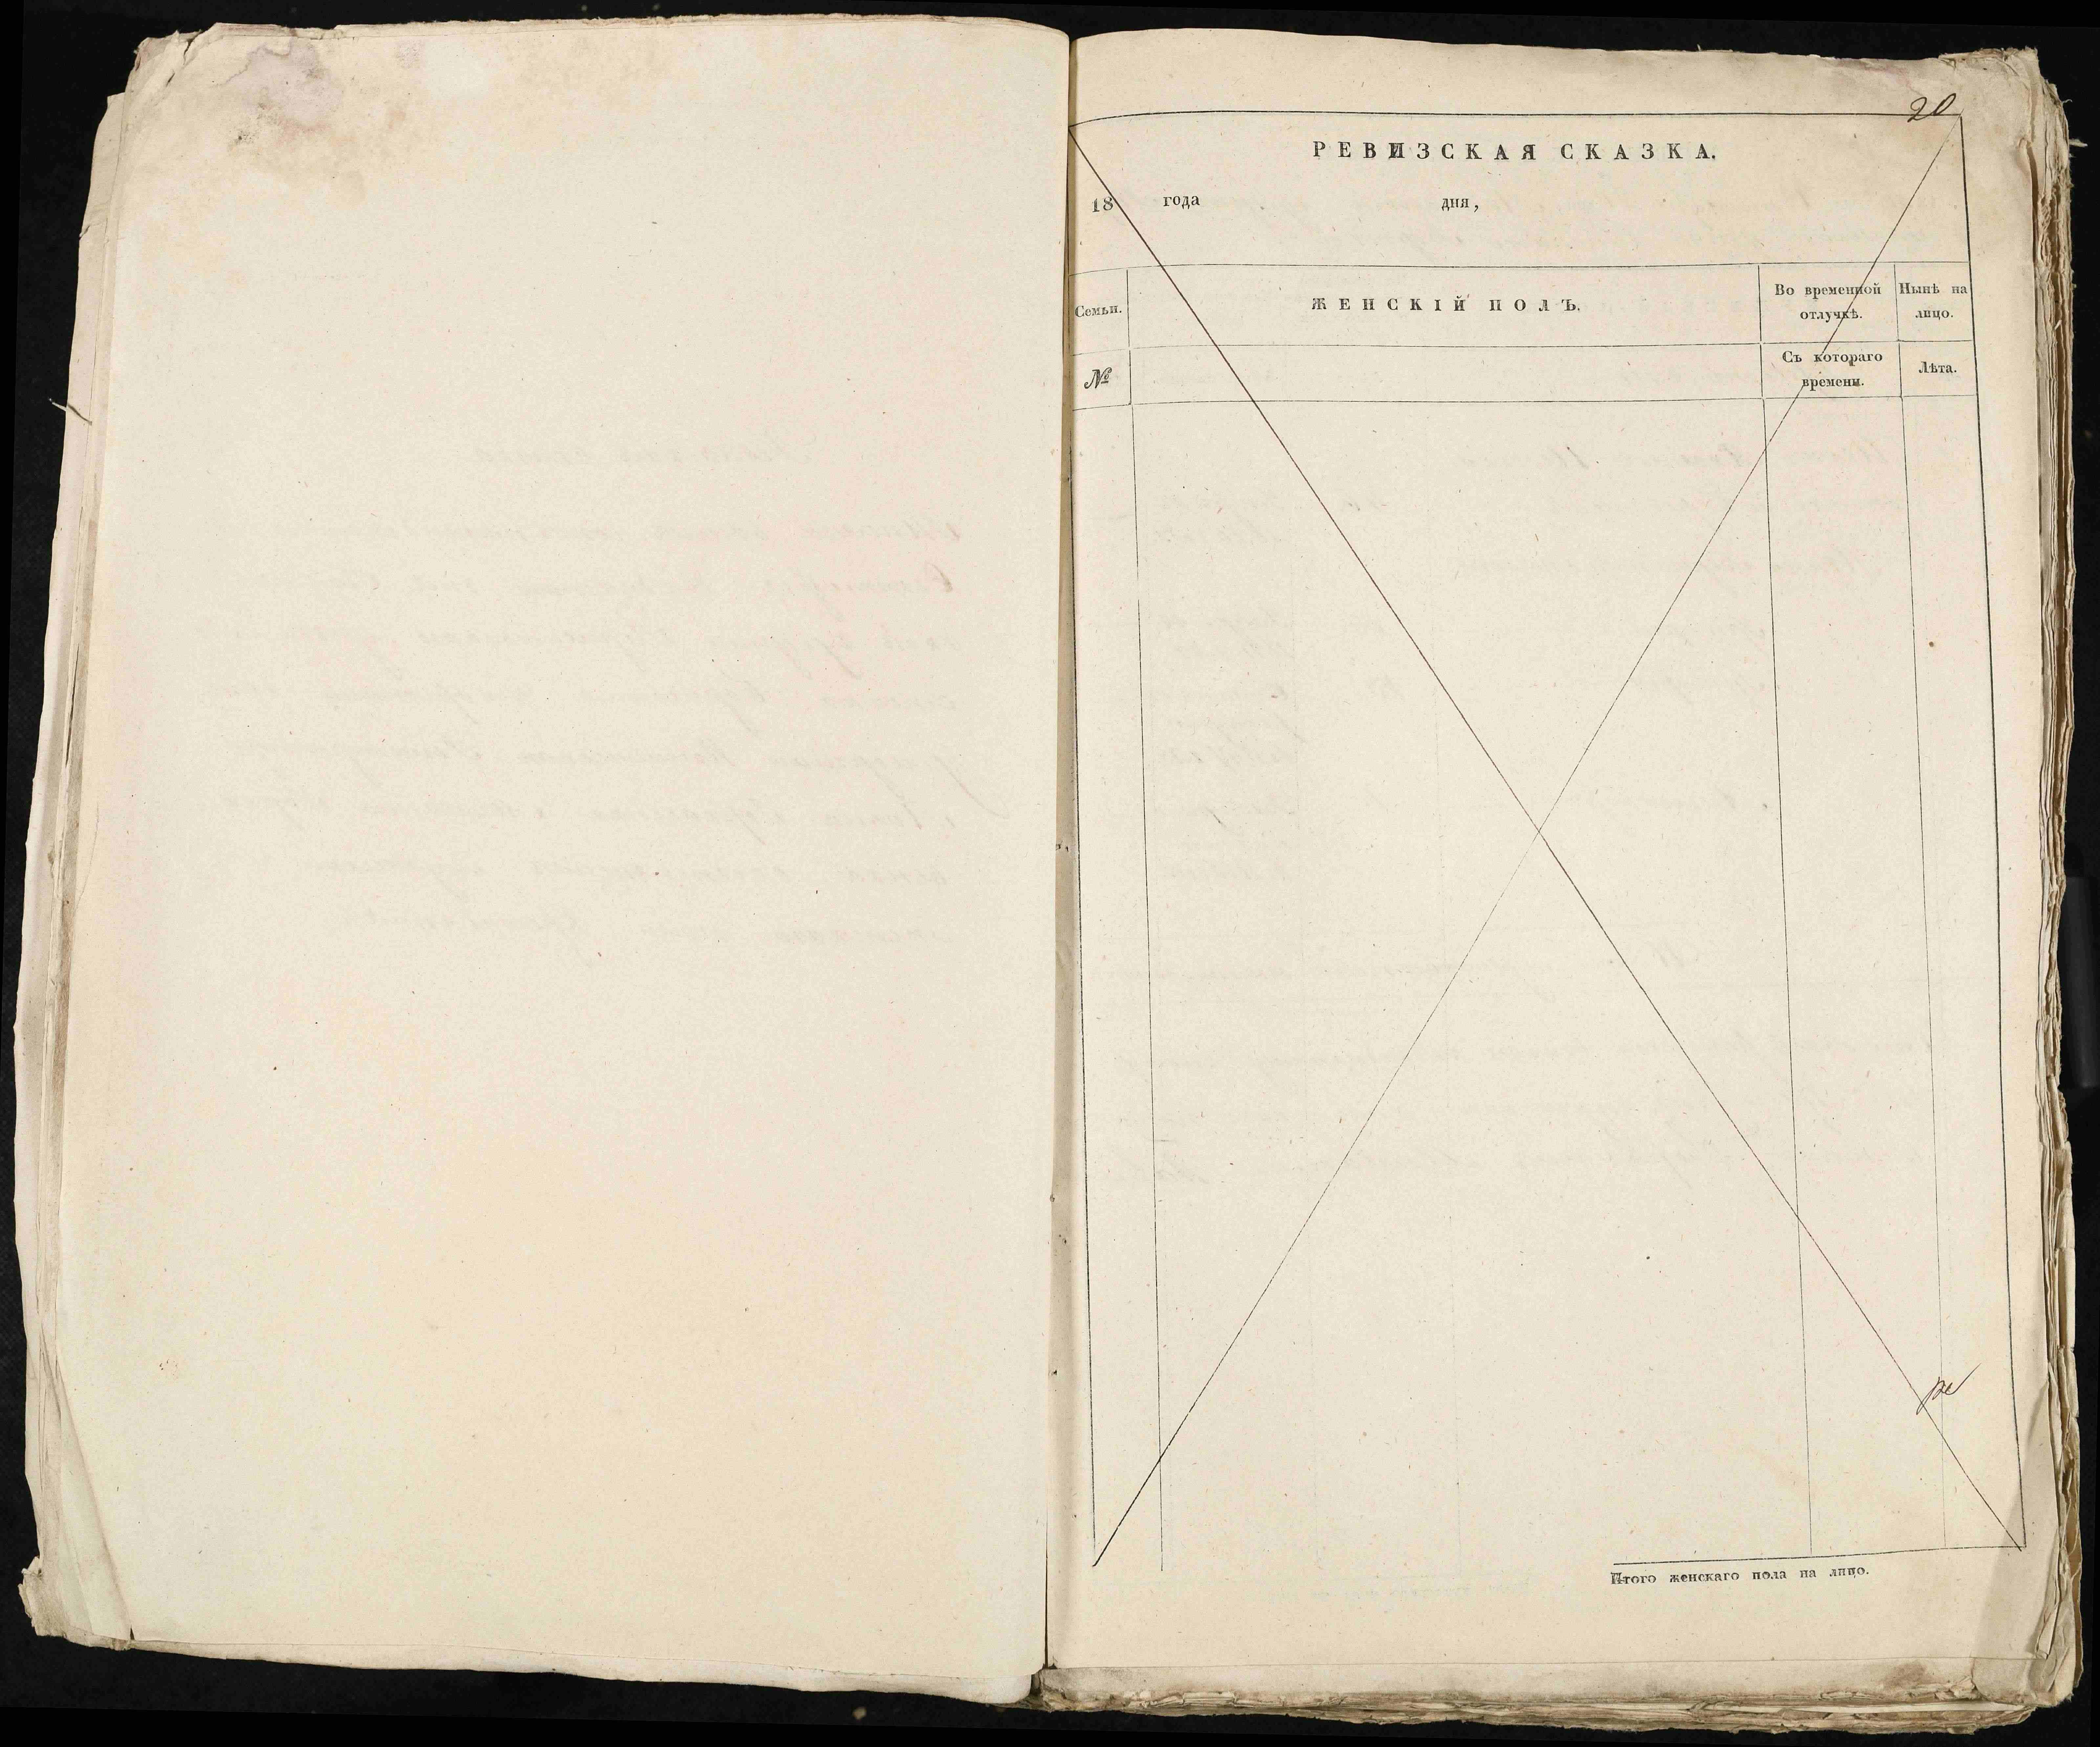 20
РЕВИЗСКАЯ СКАЗКА.
18 года дня,
Семьи.
ЖЕНСКІЙ ПОЛЪ.
Во временной отлучкѣ.
Нынѣ на лицо.
№
Съ котораго времени.
Лѣта.
Итого женскаго пола на лицо.